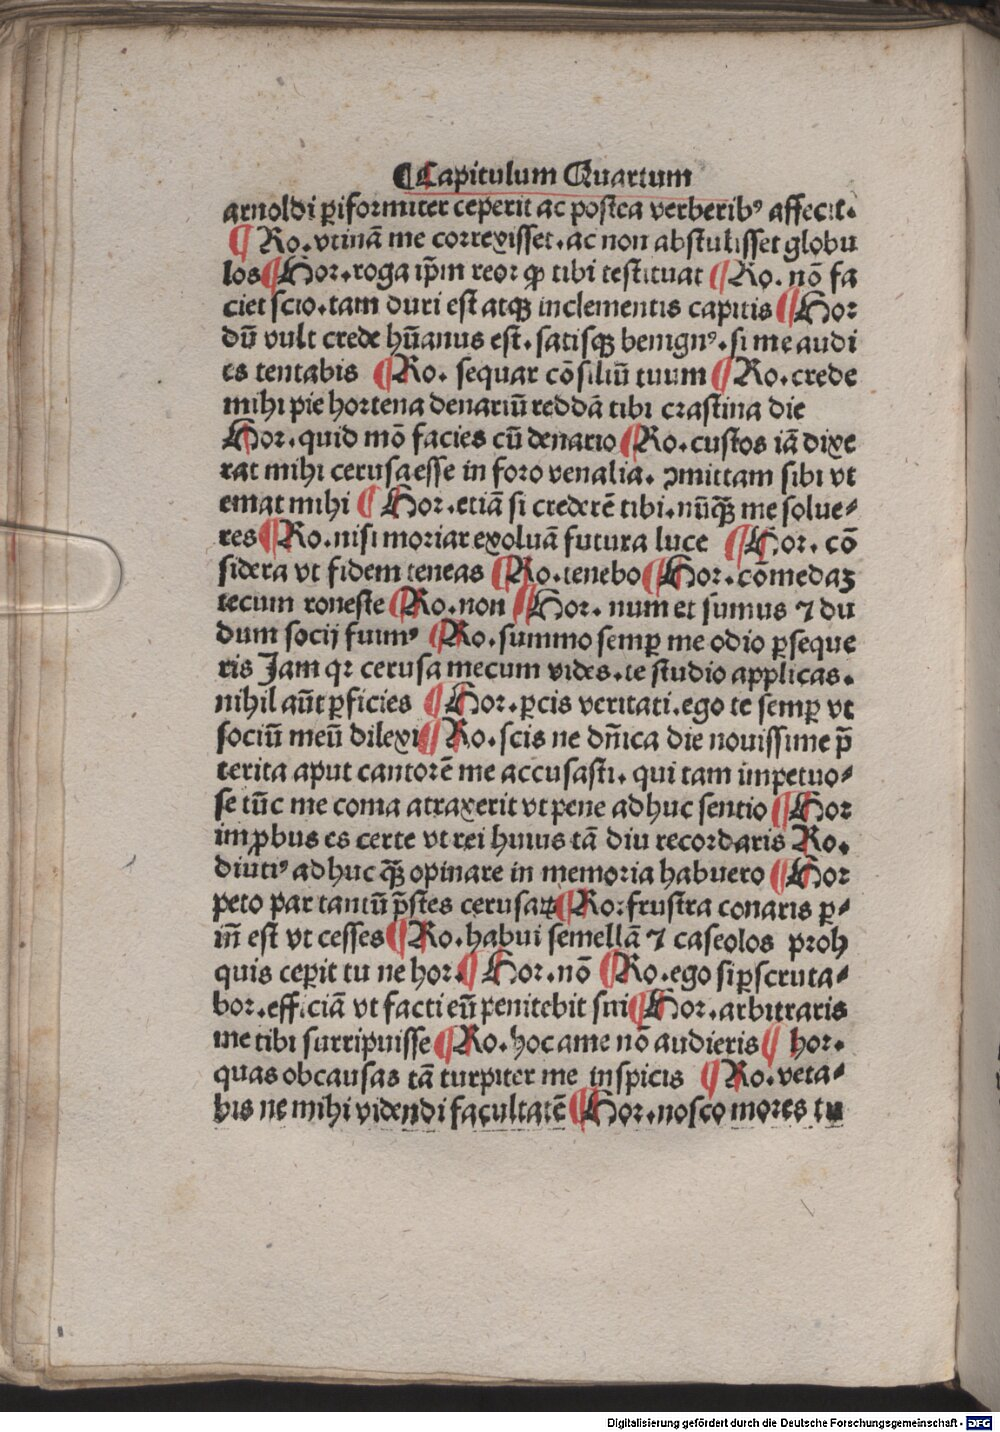 ¶Capitulum Quartum
arnoldi ꝑiformiter ceperit ac postea verberibꝰ affecit.
¶ Ro. vtinā me correxisset. ac non abstulisset globu
los ¶ Hor. roga ip̄m reor ꝙ tibi testituat ¶ Ro. nō fa
ciet scio. tam duri est atqꝫ inclementis capitis ¶ Hor
dū vult crede hūanus est. satisqꝫ benignꝰ. si me audi
es tentabis ¶ Ro. sequar cōsiliū tuum ¶ Ro. crede
mihi pie hortena denariū reddā tibi crastina die
Hor. quid mō facies cū denario ¶ Ro. custos iā dixe
rat mihi cerusa esse in foro venalia. ꝯmittam sibi vt
emat mihi ¶ Hor. etiā si crederē tibi. nūqꝫ̄ me solue⸗
res ¶ Ro. nisi moriar exoluā futura luce ¶ Hor. cō
sidera vt fidem teneas ¶ Ro. tenebo ¶ Hor. cōmedaꝫ
tecum roneste ¶ Ro. non ¶ Hor. num et sumus ⁊ du
dum socij fuimꝰ ¶ Ro. summo semꝑ me odio ꝑseque
ris Jam qr cerusa mecum vides. te studio applicas.
nihil aūt ꝑficies ¶ Hor. ꝑcis veritati. ego te semꝑ vt
sociū meū dilexi ¶ Ro. scis ne dn̄ica die nouissime p̄
terita aput cantorē me accusasti. qui tam impetuo⸗
se tūc me coma atraxerit vt pene adhuc sentio ¶ Hor
imꝓbus es certe vt rei huius tā diu recordaris Ro.
diutiꝰ adhuc qꝫ̄ opinare in memoria habuero ¶ Hor
peto par tantū p̄stes cerusaꝝ ¶ Ro: frustra conaris ꝑ⸗
in̄ est vt cesses ¶ Ro. habui semellā ⁊ caseolos proh
quis cepit tu ne hor. ¶ Hor. nō ¶ Ro. ego si ꝑscruta⸗
bor. efficiā vt facti eū penitebit sui ¶ Hor. arbitraris
me tibi surripuisse ¶ Ro. hoc a me nō audieris ¶ hor.
quas obcausas tā turpiter me inspicis ¶ Ro. veta⸗
bis ne mihi videndi facultatē ¶ Hor. nosco mores tu
Digitalisierung gefördert durch die Deutsche Forschungsgemeinschaft - DFG